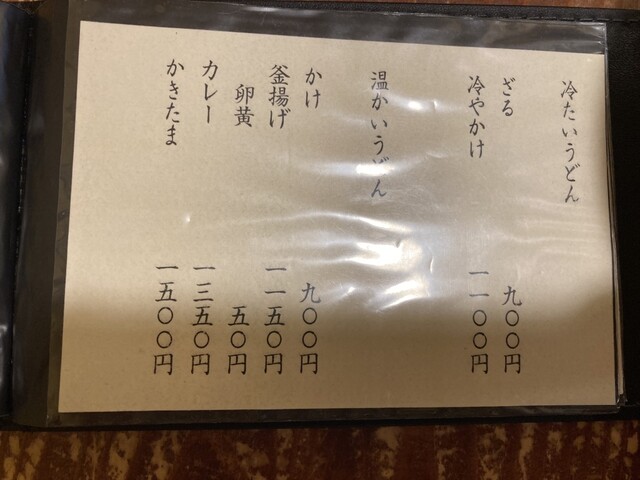 冷たいうどん
ざる 九〇〇円
冷やかけ 一一〇〇円
温かいうどん
かけ 九〇〇円
釜揚げ 一一五〇円
卵黄 五〇円
カレー 一三五〇円
かきたま 一五〇〇円